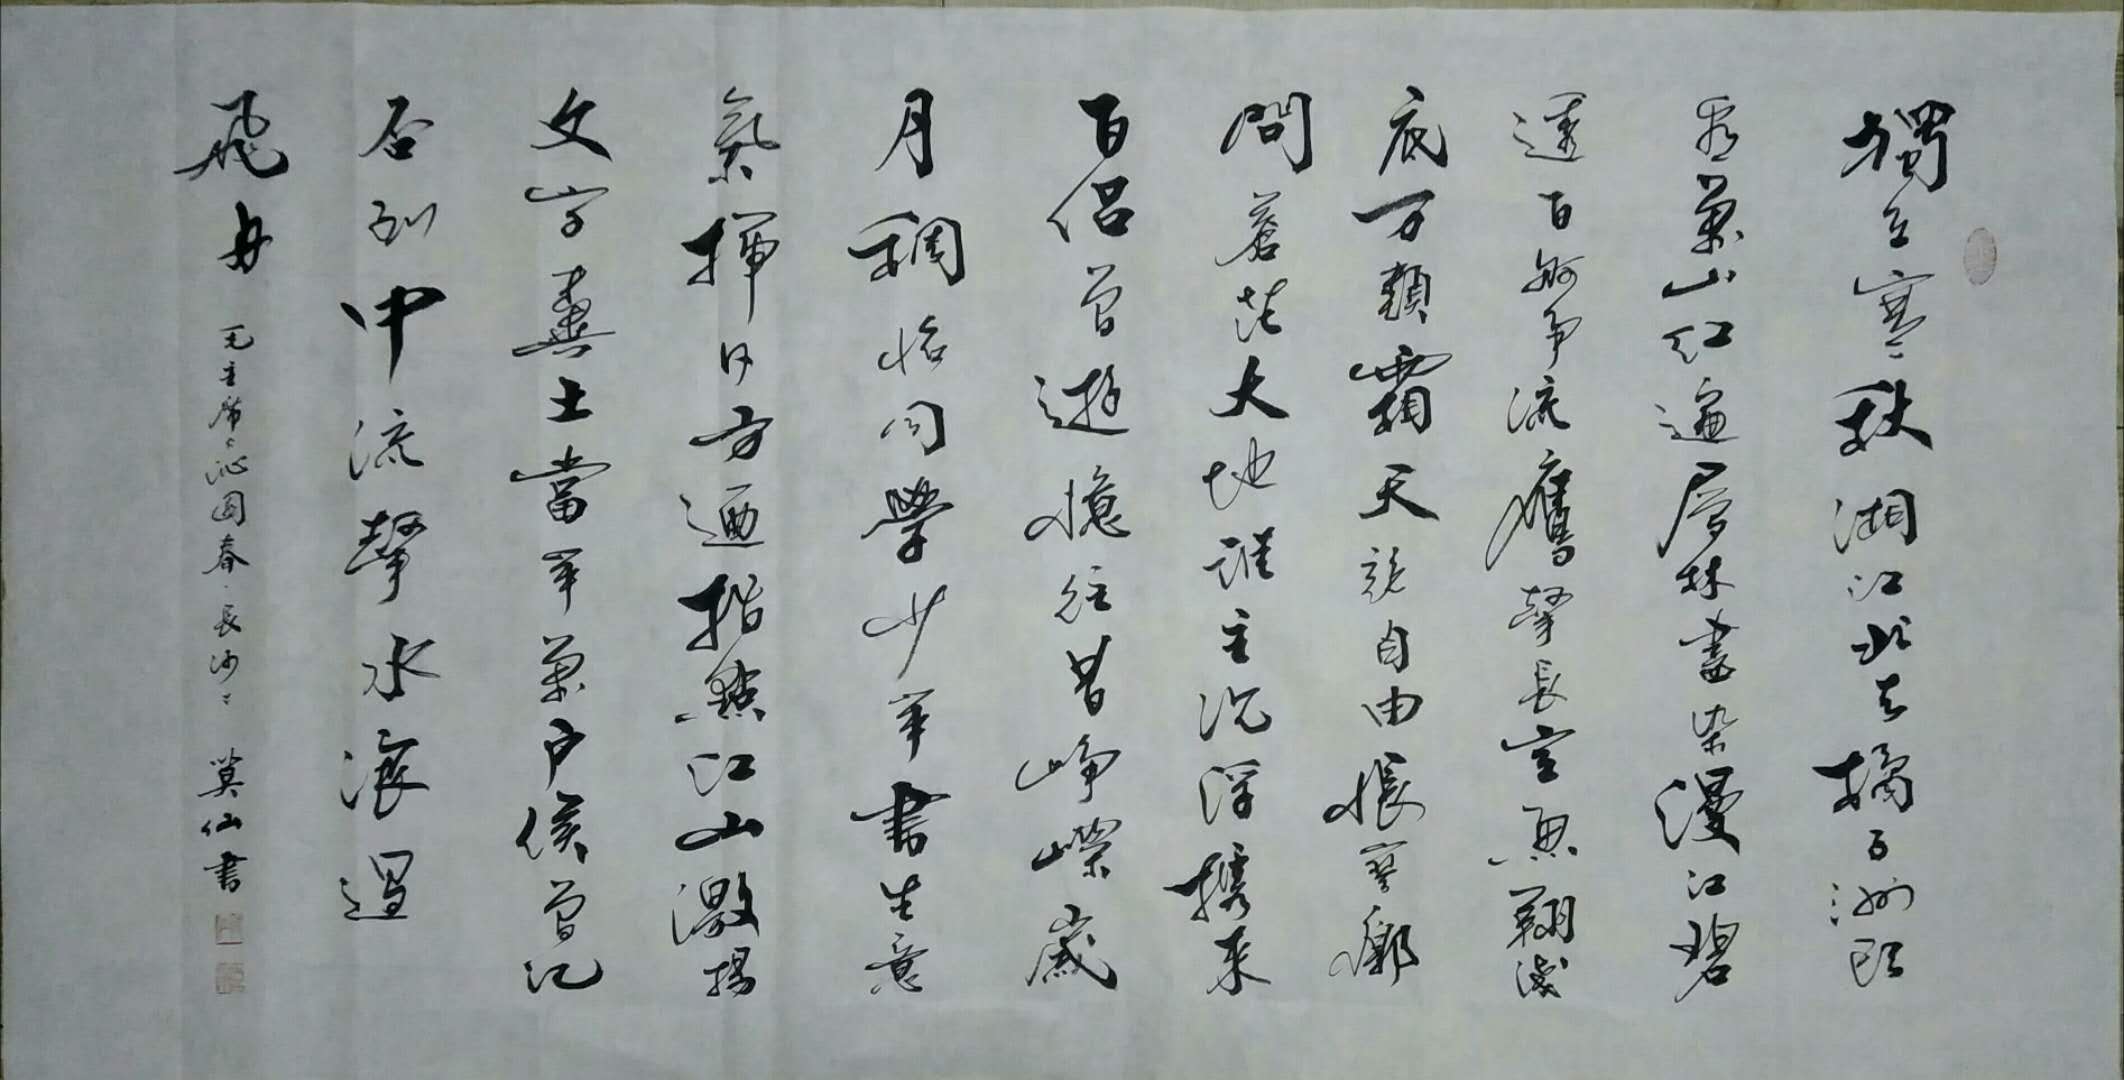 獨立寒秋湘江北去橘子洲頭
看萬山紅遍層林盡染漫江碧
透百舸争流鷹擊長空魚翔淺
底万類霜天競自由悵寥廓
問蒼茫大地誰主沉浮攜來
百侣曾遊憶往昔崢嶸歲
月稠恰同學少年書生意
氣揮斥方遒指點江山激揚
文字糞土當年萬户侯曾记
否到中流擊水浪遏
飛舟
毛主席沁园春·長沙 莫仙書